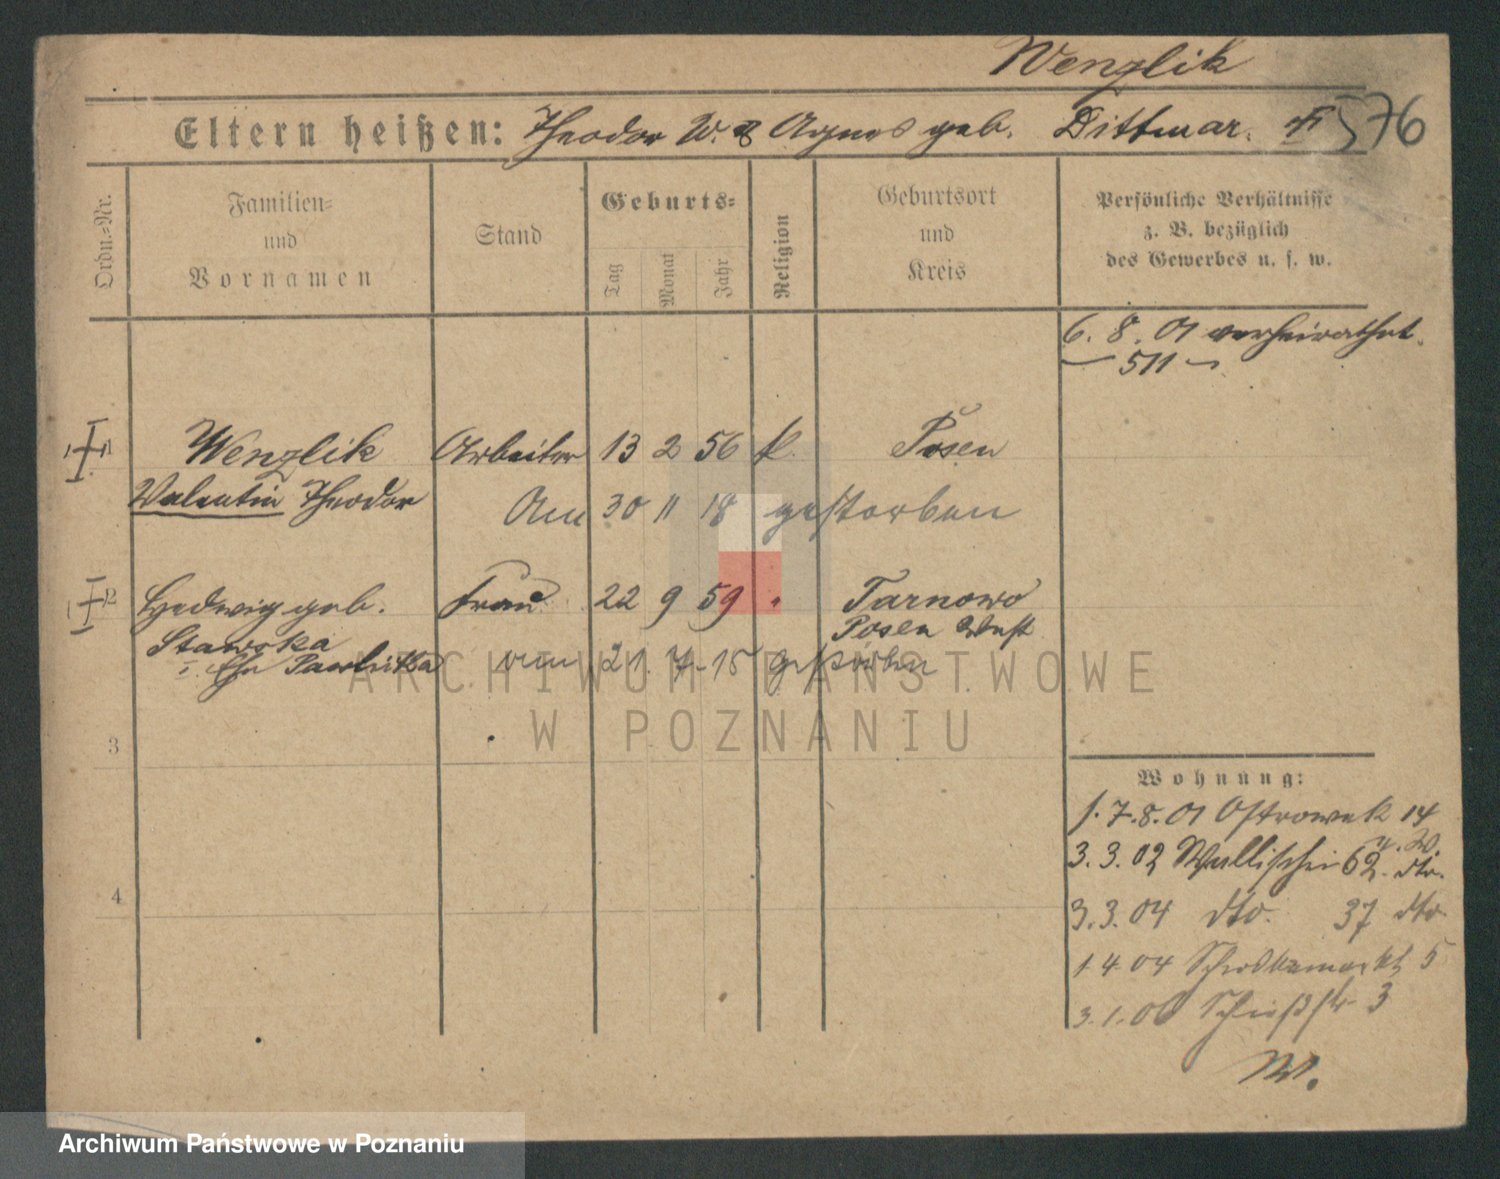 Wenzlik
Eltern heißen: Theodor W. & Agnes geb. Dittmar. 576
Ordn.-Nr.
Familien-
und
Vornamen
Stand
Geburts-
Tag
Monat
Jahr
Religion
Geburtsort
und
Kreis
Persönliche Verhältnisse
z. B. bezüglich
des Gewerbes u. s. w.
6. 8. 01 verheirathet.
511
1 Wenzlik Arbeiter 13 2 56 k. Posen
Valentin Theodor Am 30 11 18 gestorben
2 Hedwig geb. Frau 22 9 59 " Tarnowo
Stawska Posen West
I. Ehe Pawlitka am 21. 7. 15 gestorben
3
4
Wohnung:
1. 7. 8. 01 Ostrowek 14
b. W.
3. 3. 02 Wallischei 62. dto.
3. 3. 04 dto. 37 dto
1 4 04 Schrodkamarkt 5
3. 1. 06 Schießstr. 3
W.
ARCHIWUM PAŃSTWOWE
W POZNANIU
Archiwum Państwowe w Poznaniu